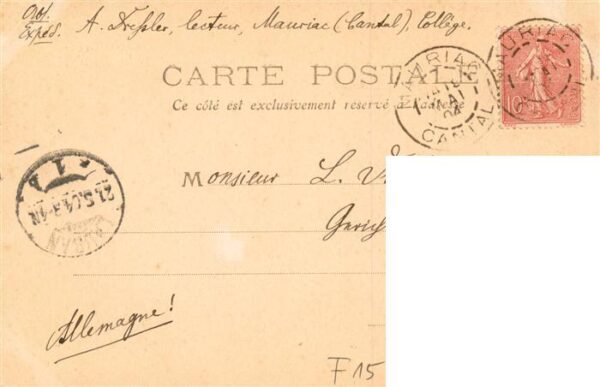 Abs.
Expéd. A. Dreßler, lecteur, Mauriac (Cantal), Collège.
CARTE POSTALE
Ce côté est exclusivement reservé à l'adresse
MAURIAC
MAI
04
CANTAL
10
Monsieur L.
Gerich
1 b
21.5.04.3-4N
Allemagne!
F 15